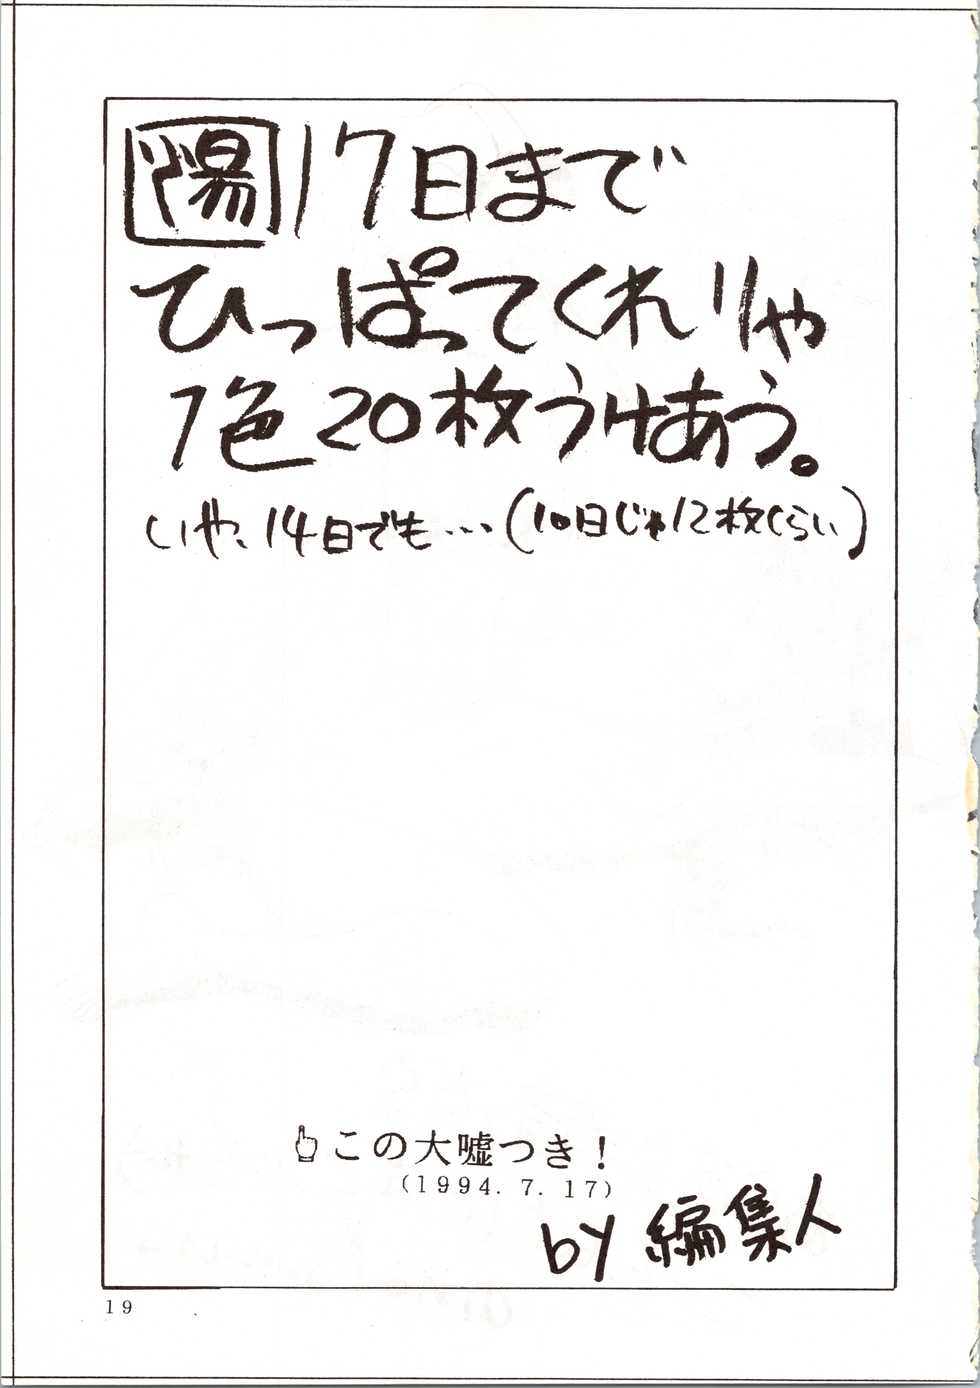 湯 17日まで
ひっぱってくれりゃ
1色20枚うけあう。
いや、14日でも…(10日じゃ12枚くらい)
👆この大嘘つき!
(1994.7.17)
by 編集人
19